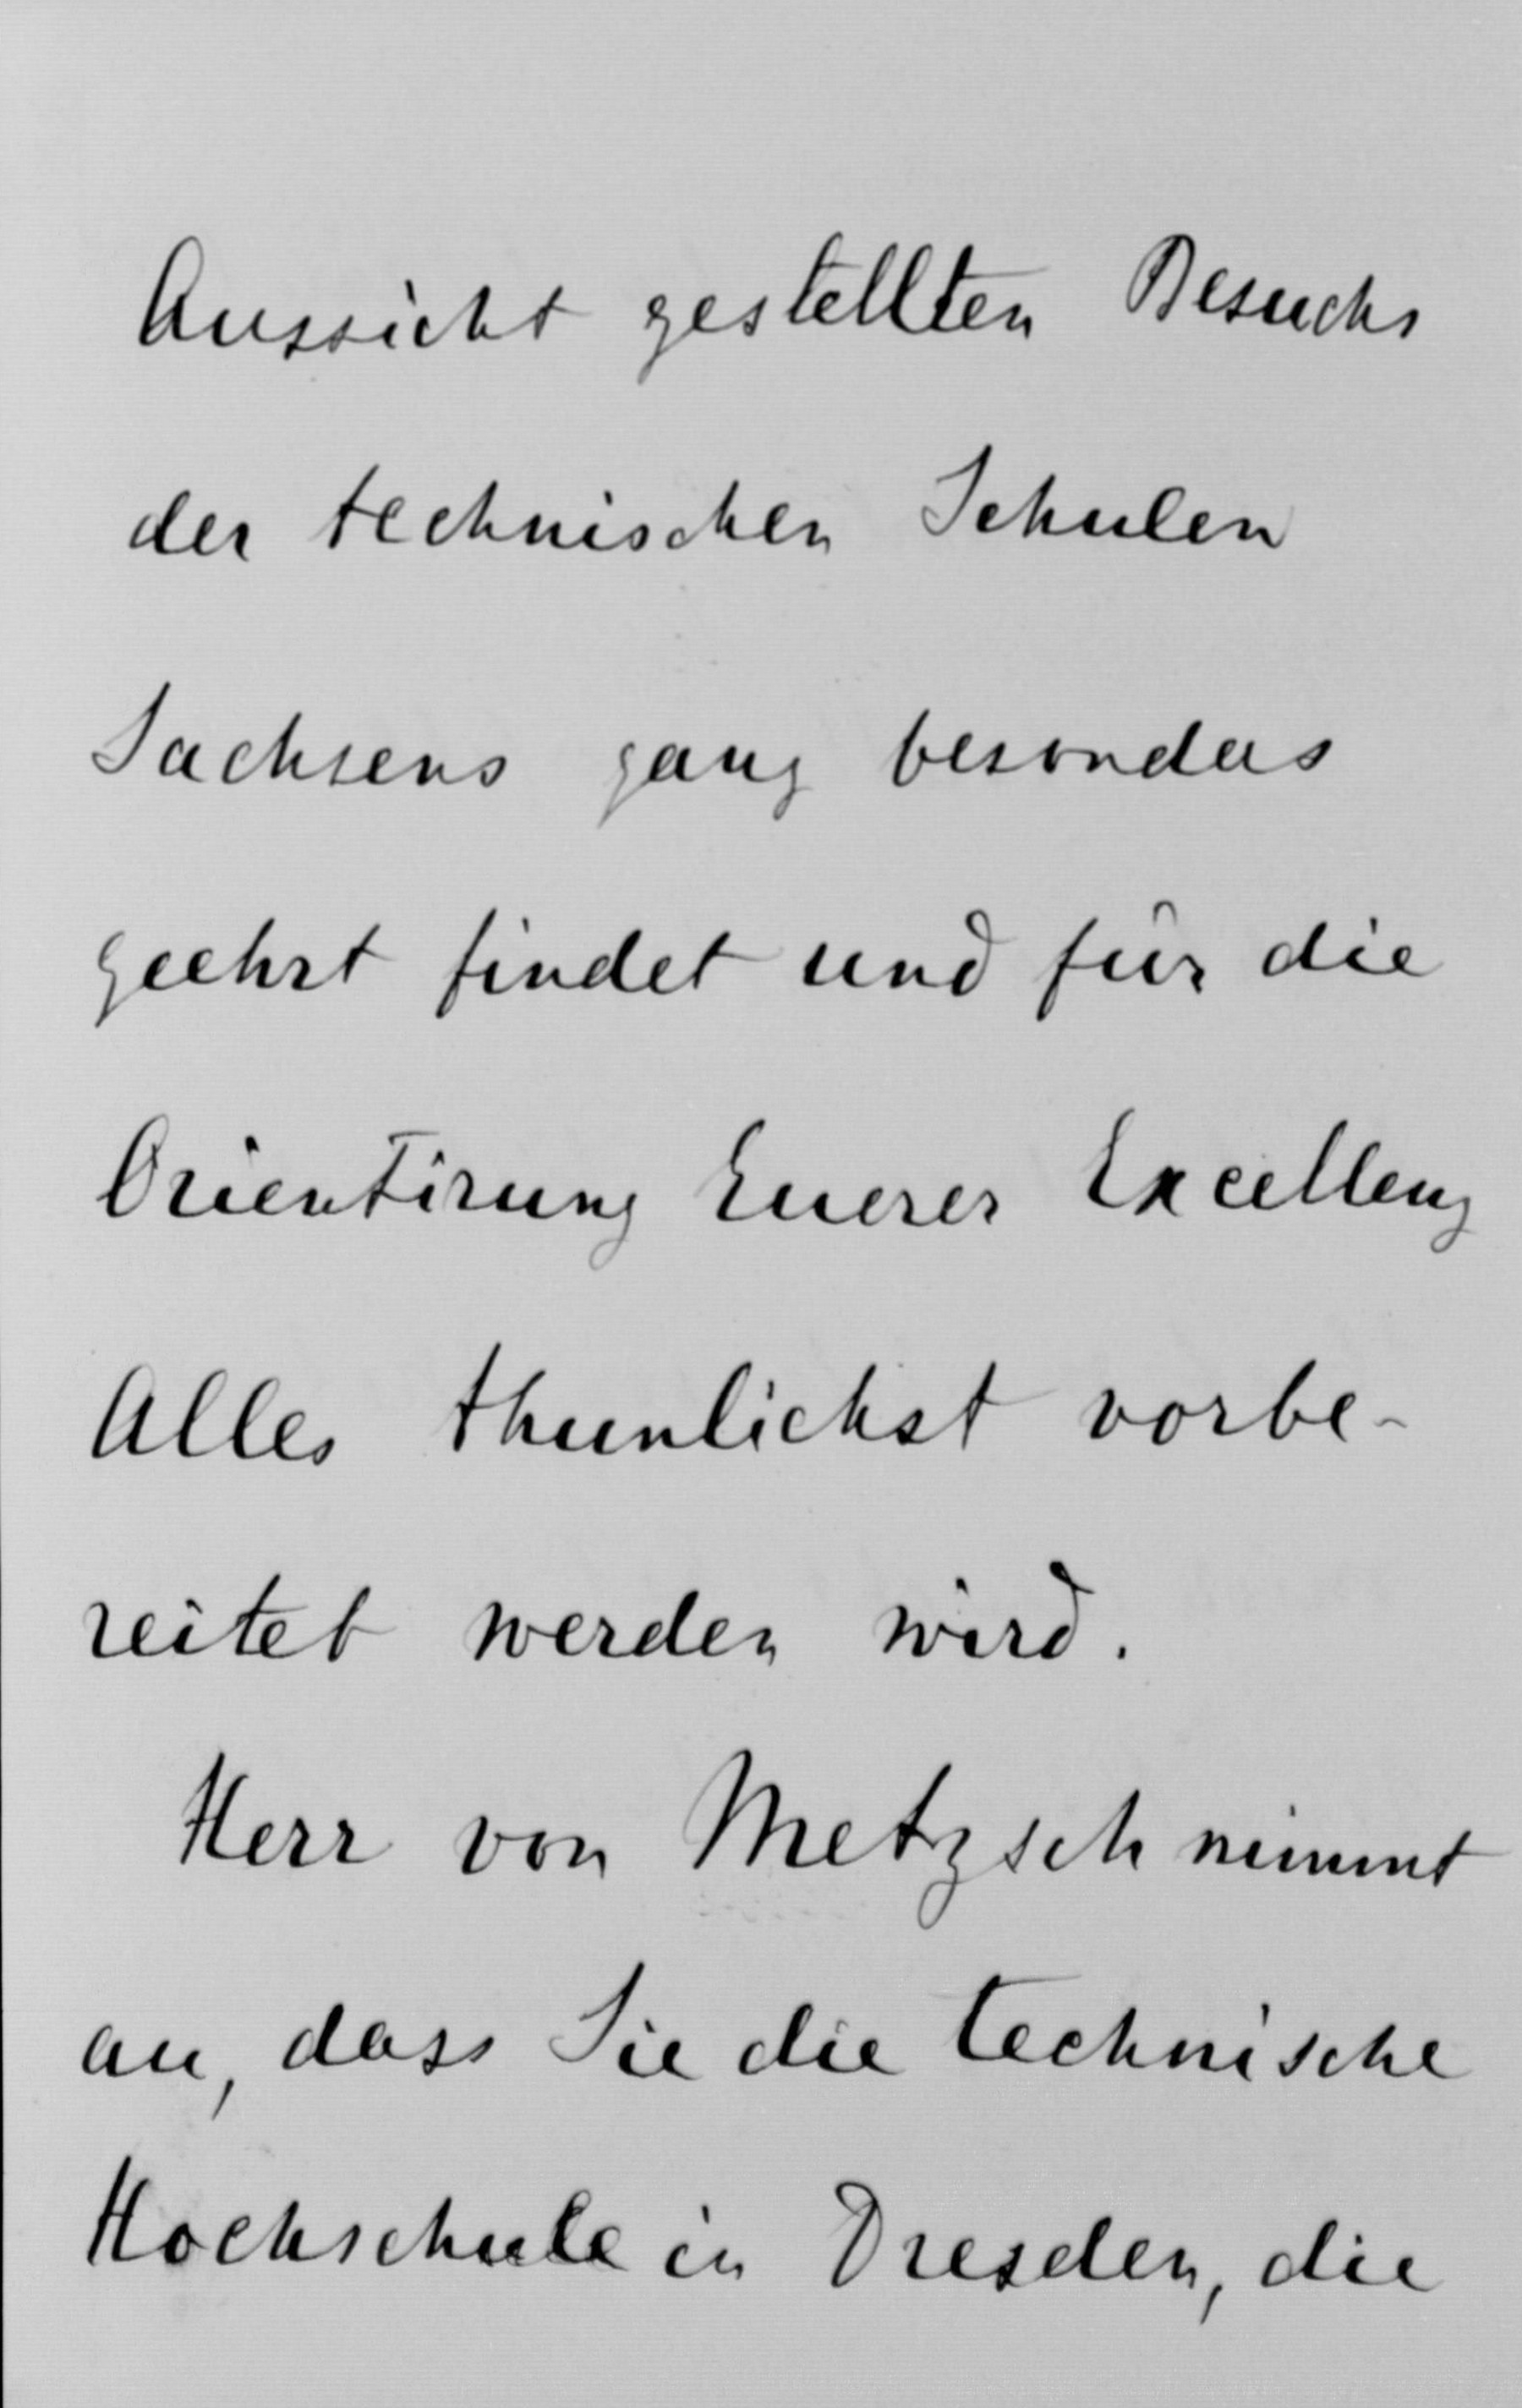 Aussicht gestellten Besuchs
der technischen Schulen
Sachsens ganz besonders
geehrt findet und für die
Orientirung Euerer Excellenz
Alles thunlichst vorbe-
reitet werden wird.
Herr von Metzsch nimmt
an, dass Sie die technische
Hochschule in Dresden, die